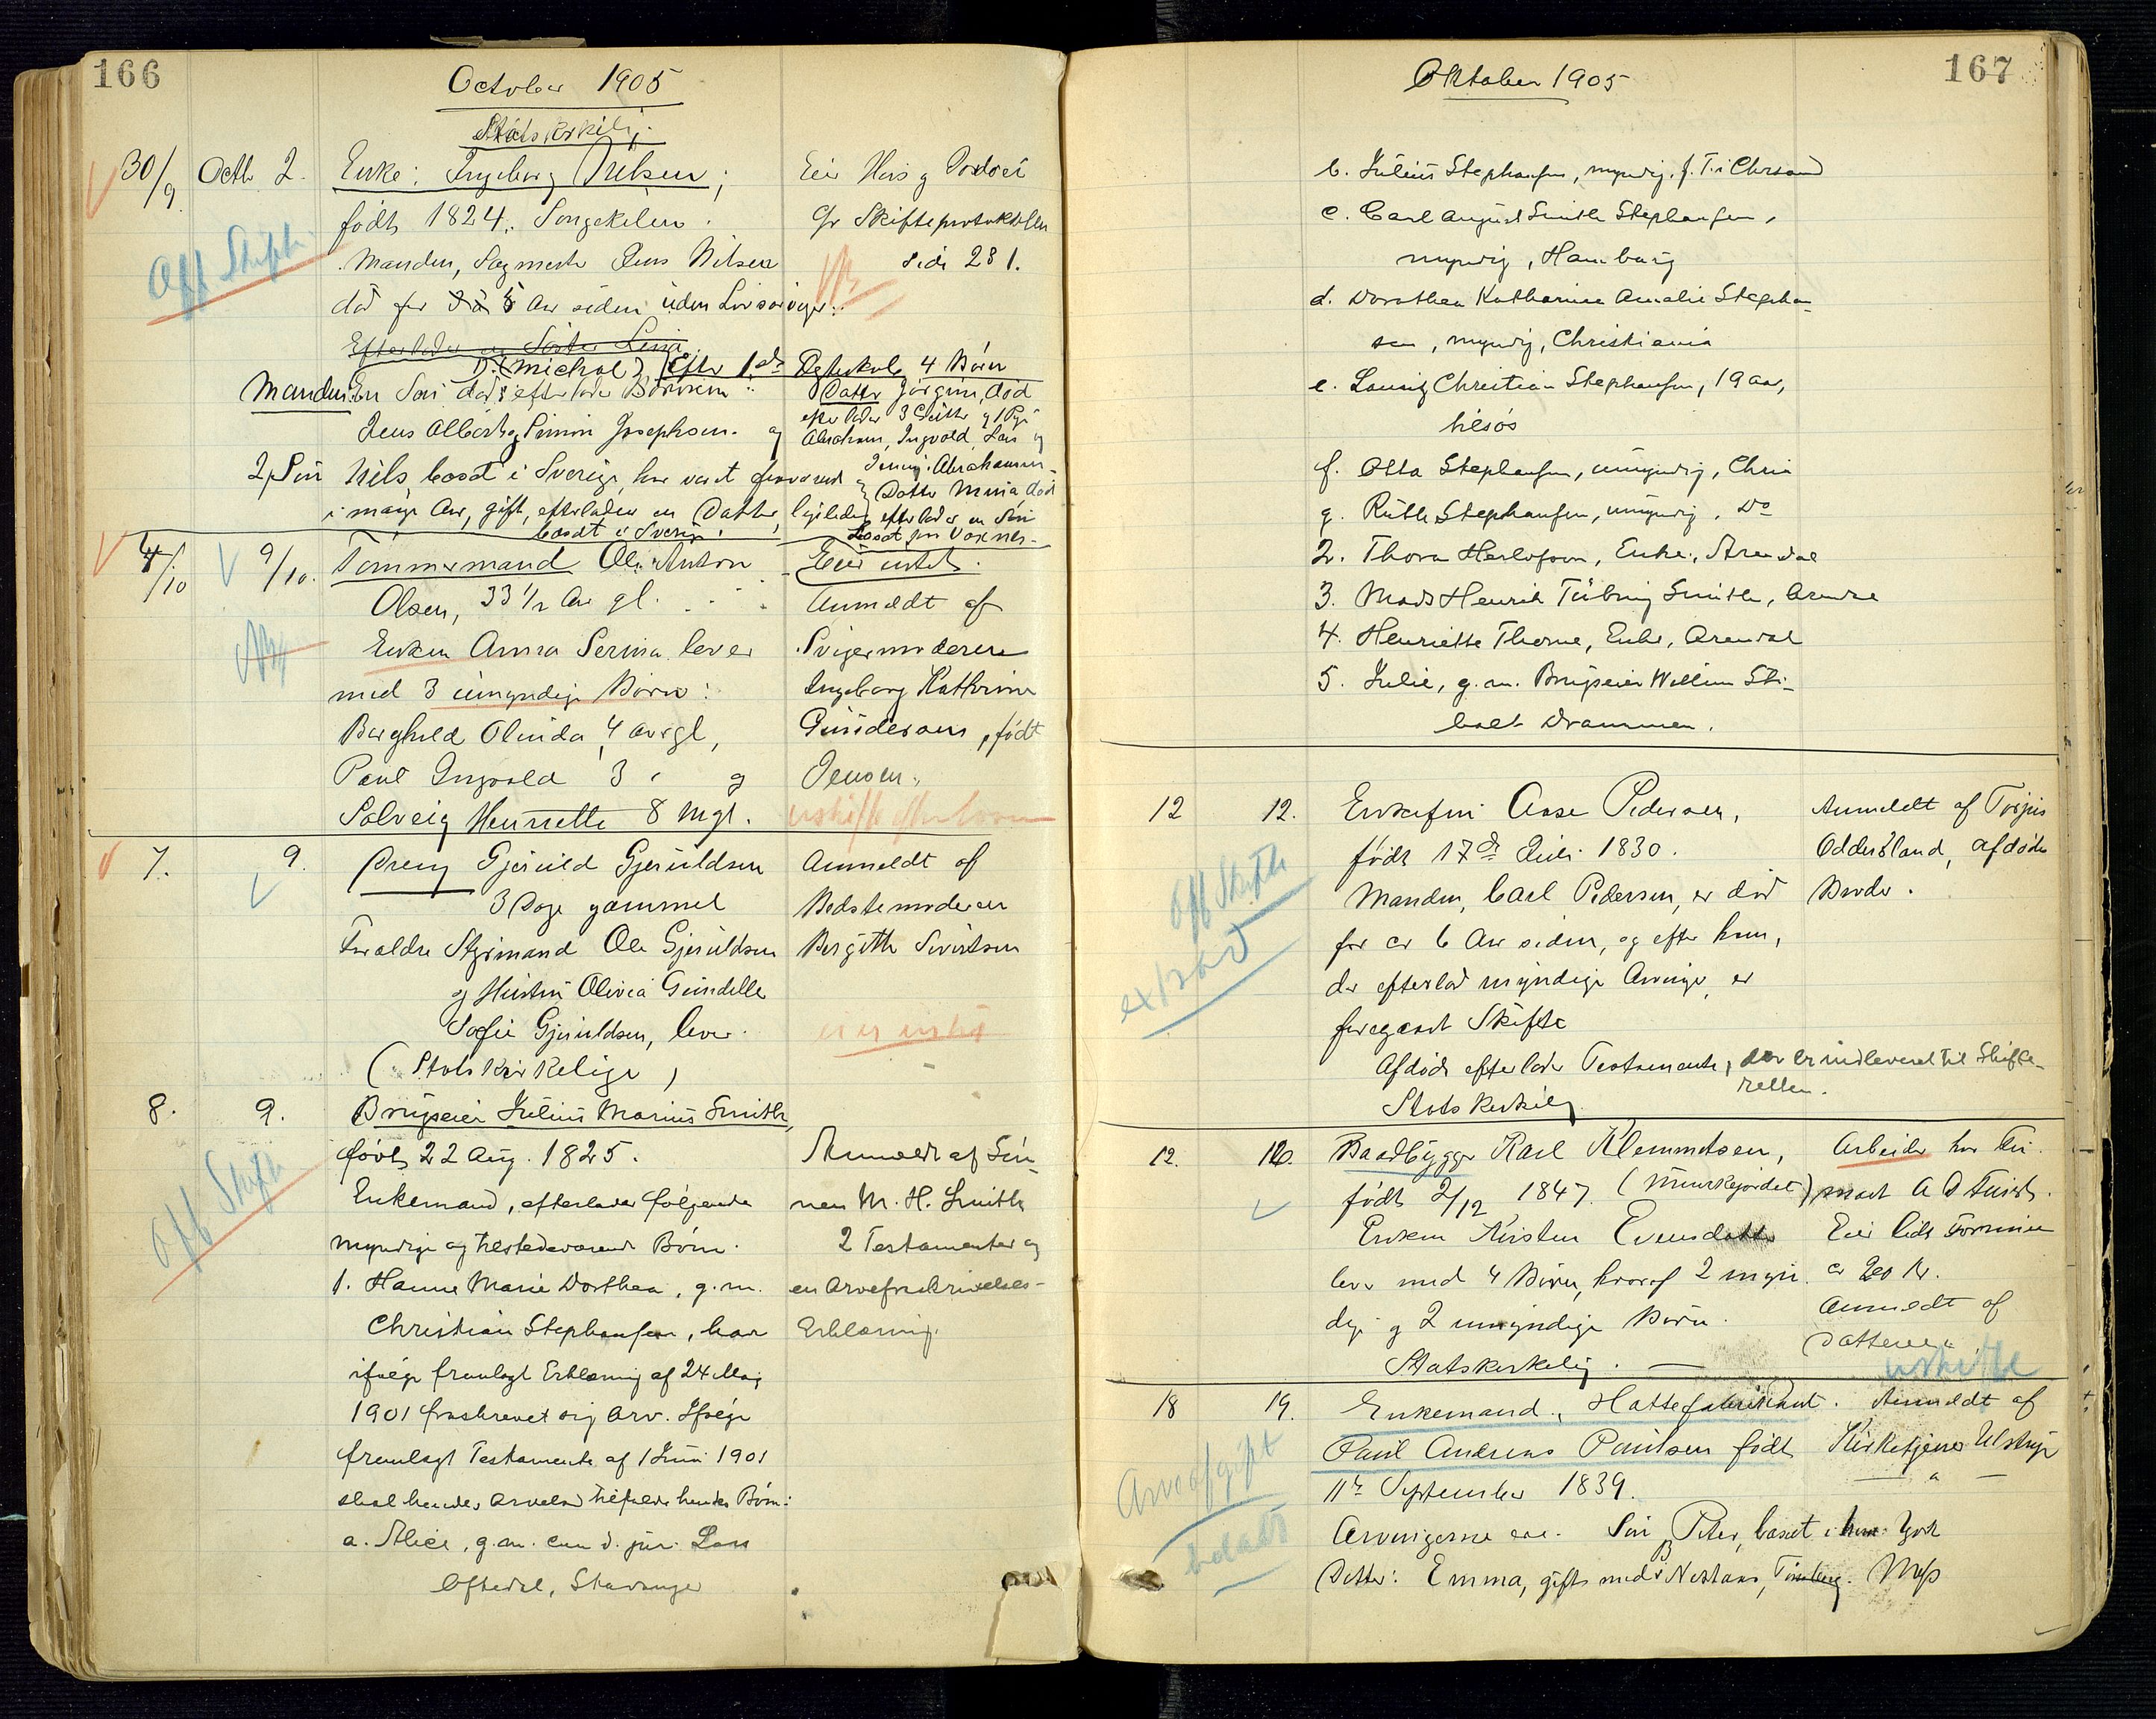 166
October 1905
Statskirkelig.
30/9 Octb 2. Enke: Ingeborg Nilsen;
født 1824, Songekilen.
Manden, Sagmester Jens Nilsen
død for 5 Aar siden uden Livsarvinger.
Efterlader en Søster
D. (Michal) Efter 1ste Ægteskab 4 Børn
Manden: En Søn død efterlader Børnene:
Jens Albert og Simon Josephsen. og
2, Søn Nils, bosat i Sverige, har været fraværend
i mange Aar, gift, efterlader en Datter, ligeledes
bosat i Sverige.
Eier Hus og Indbo
Cfr Skifteprotokollen
side 281.
Datter Jørgine, død
efterlader 3 Gutter og 1 Pige
Abraham, Ingvald, Lars og
Jenny Abrahamsen
Datter Maria, død
efterlader en Søn
Bosat paa Voxnes.
Off Skifte
4/10 9/10. Tømmermand Ole Anton
Olsen, 33 1/2 Aar gl.
Enken Anna Serina lever
med 3 umyndige Børn:
Borghild Olinda, 4 Aar gl,
Paul Ingvald 3 " og
Solveig Henriette 8 Mgl.
Eier intet.
Anmeldt af
Svigermoderen
Ingeborg Kathrine
Gundersen, født
Jensen.
uskifte efter loven
7. 9. Dreng Gjeruld Gjeruldsen
3 Dage gammel
Forældre Styrmand Ole Gjeruldsen
og Hustru Olivia Gundelle
Sofie Gjeruldsen, lever.
(Statskirkelige)
Anmeldt af
Bedstemoderen
Bergithe Sivertsen
eier intet
8. 9. Brugseier Julius Marius Smith,
født 22 Aug. 1825.
Enkemand, efterlader følgende
myndige og tilstedeværende Børn.
1. Hanne Marie Dorthea, g.m.
Christian Stephansen, har
ifølge fremlagt Erklæring af 24 Mai
1901 fraskrevet sig Arv. Ifølge
fremlagt Testamente af 1 Juni 1901
skal hendes Arvelod tilfalde hendes Børn:
a. Alice, g.m. cand. jur. Lars
Oftedal, Stavanger
Anmeldt af Søn-
nen M. H. Smith
2 Testamenter og
en Arvefraskrivelses-
Erklæring.
Off Skifte
167
Oktober 1905
b. Julius Stephansen, myndig, f. T. i Chrsand
c. Carl August Smith Stephansen,
myndig, Hamburg
d. Dorothea Katharine Amalie Stephan-
sen, myndig, Christiania
e. Lauritz Christian Stephansen, 19 aar,
tilsøs
f. Otto Stephansen, umyndig, Chria
g. Ruth Stephansen, umyndig, Do
2. Thora Herlofson, Enke, Arendal
3. Mads Henrik Tübring Smith, Arendal
4. Henriette Thorne, Enke, Arendal
5. Julie, g.m. Brugseier Willum Sti-
bolt Drammen.
12 12. Enkefru Aase Pedersen,
født 17de Juli 1830.
Manden, Carl Pedersen, er død
for ca 6 Aar siden, og efter ham,
der efterlod myndige Arvinger, er
foregaaet Skifte
Afdøde efterlader Testamente, der er indleveret til Skifte-
retten.
Statskirkelig
Anmeldt af Torjus
Oddersland, afdødes
Broder.
Off Skifte
12. 16. Baadbygger Karl Klemmetsen,
født 2/12 1847. (Murkejordet)
Enken Kirsten Evensdatter
lever med 4 Børn, hvoraf 2 myn-
dige og 2 umyndige Børn.
Statskirkelig.
Arbeider hos Fir-
maet A D
Eier lidt Formue
ca 200 Kr.
Anmeldt af
Datteren
uskifte
18 19. Enkemand, Hattefabrikant
Paul Andreas Paulsen født
11te September 1839.
Arvingerne ere. Søn Peter, bosat i New York
Datter: Emma, gift med Nestaas, Tønsberg.
Anmeldt af
Kirketjener Ulstrup
Arveafgift
betalt